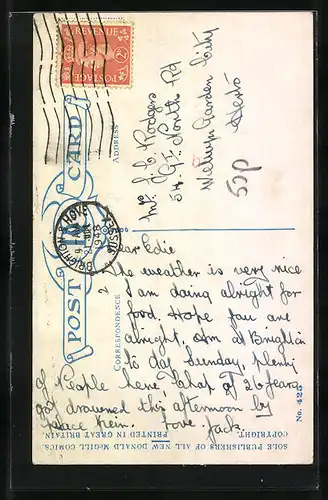 POST CARD
CORRESPONDENCE
ADDRESS
REVENUE
POSTAGE
BRIGHTON & HOVE
SUSSEX
Dear Edie
The weather is very nice
I am doing alright for
food. Hope you are
alright. Am at Brighton
to day Sunday, plenty
of People here, chap of 26 years
got drowned this afternoon by
place here. Love Jack.
Mr J. C. Rodgers
54 Gt. North Rd
Welwyn Garden City
Herts
50p
SOLE PUBLISHERS OF ALL NEW DONALD McGILL COMICS.
COPYRIGHT. PRINTED IN GREAT BRITAIN.
No. 425